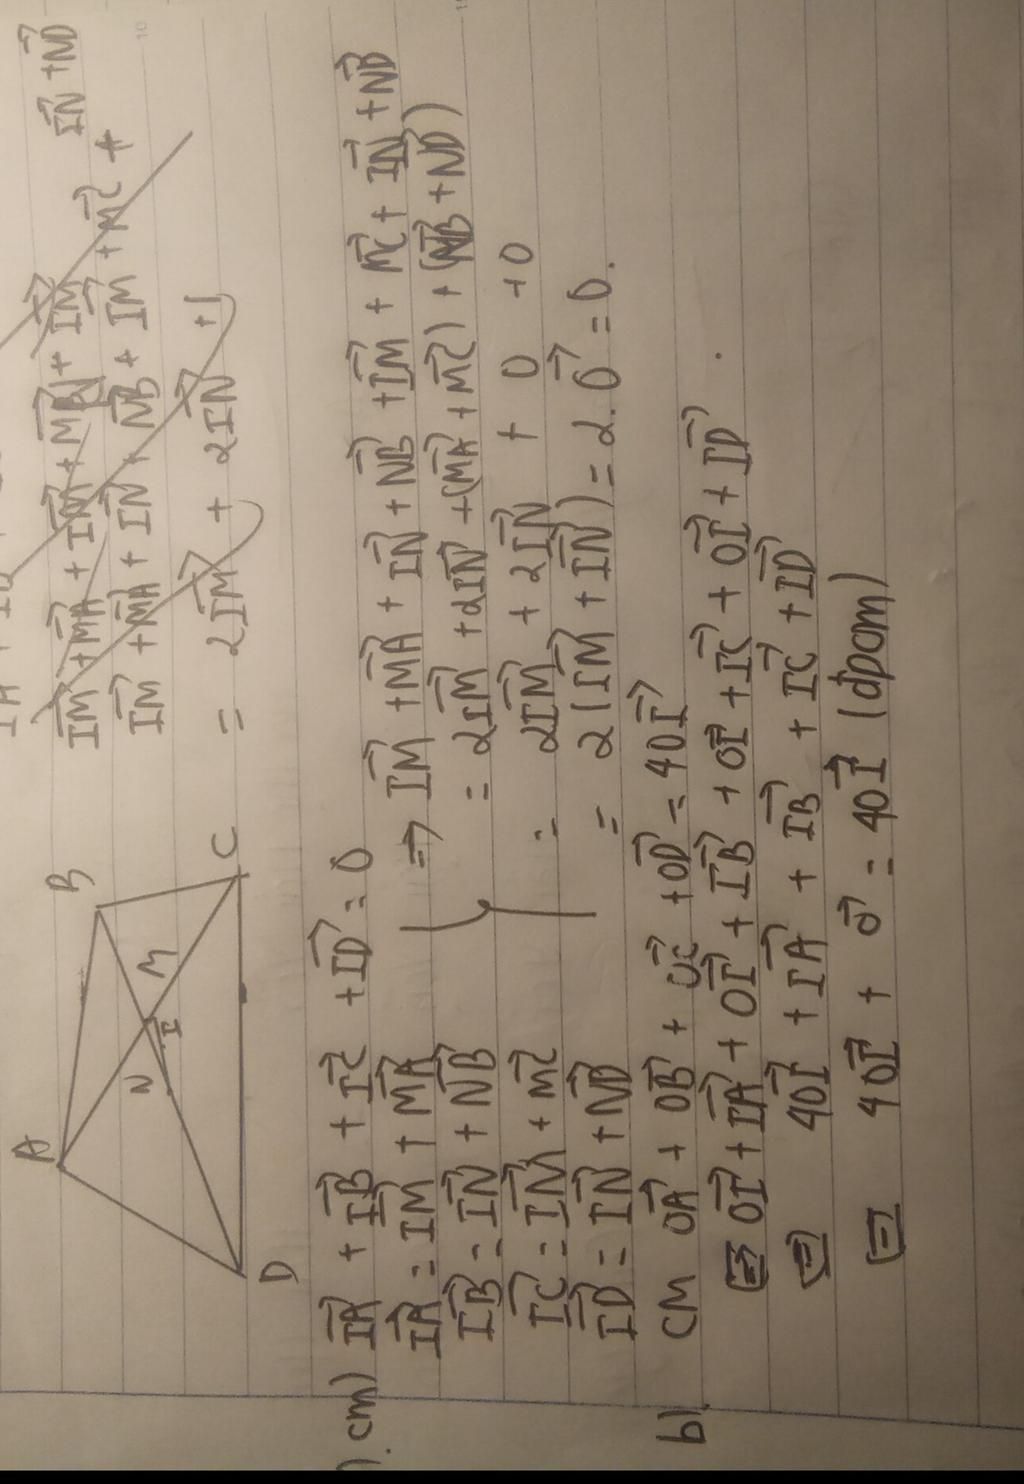 IM→ + MA→ + IN→ + MB→ + IM→
IN→ + ND→
IM→ + MA→ + IN→ + NB→ + IM→ + MC→ +
= 2IM→ + 2IN→ +
A
B
N
M
I
D
C
). cm) IA→ + IB→ + IC→ + ID→ = 0
IA→ = IM→ + MA→
IB→ = IN→ + NB→
IC→ = IM→ + MC→
ID→ = IN→ + ND→
=> IM→ + MA→ + IN→ + NB→ + IM→ + MC→ + IN→ + NB→
= 2IM→ + 2IN→ + (MA→ + MC→) + (NB→ + ND→)
= 2IM→ + 2IN→ + 0 + 0
= 2(IM→ + IN→) = 2.O→ = 0.
b). CM OA→ + OB→ + OC→ + OD→ = 4OI→
(=) OI→ + IA→ + OI→ + IB→ + OI→ + IC→ + OI→ + ID→.
(=) 4OI→ + IA→ + IB→ + IC→ + ID→
(=) 4OI→ + O→ = 4OI→ (dpcm)